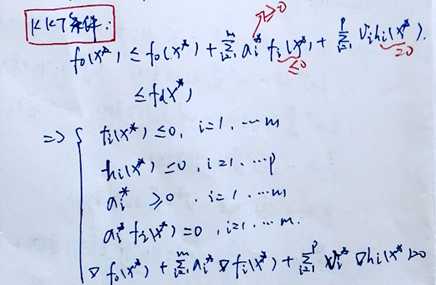 KKT条件:
≥0
f₀(x*) ≤ f₀(x*) + ∑ᵢ₌₁ᵐ aᵢ* fᵢ(x*) + ∑ᵢ₌₁ᵖ vᵢhᵢ(x*).
≤0 =0
≤ f₀(x*)
=> { fᵢ(x*) ≤0, i=1, ...m
hᵢ(x*) ≤0, i=1, ...p
aᵢ* ≥0, i=1, ...m
aᵢ* fᵢ(x*)=0, i=1, ...m.
∇f₀(x*) + ∑ᵢ₌₁ᵐ aᵢ* ∇fᵢ(x*) + ∑ᵢ₌₁ᵖ vᵢ* ∇hᵢ(x*)=0